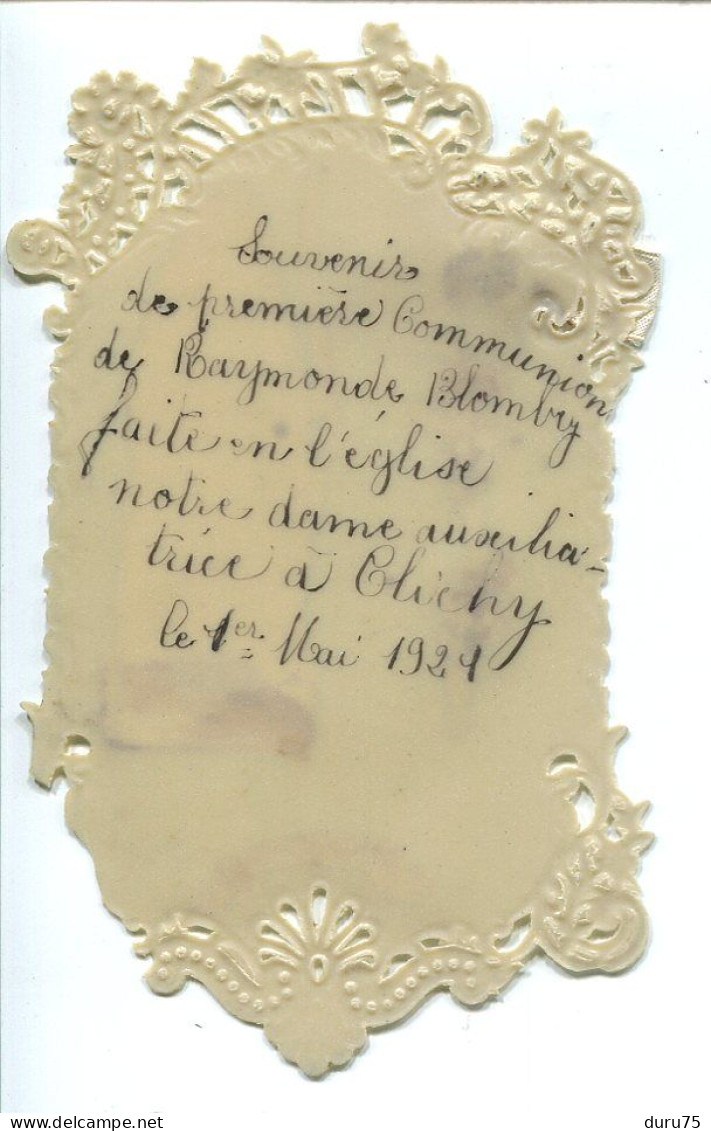 Souvenir
de première Communion
de Raymonde Blombry
faite en l'église
notre dame auxilia-
trice à Clichy
le 1er Mai 1921
duru75